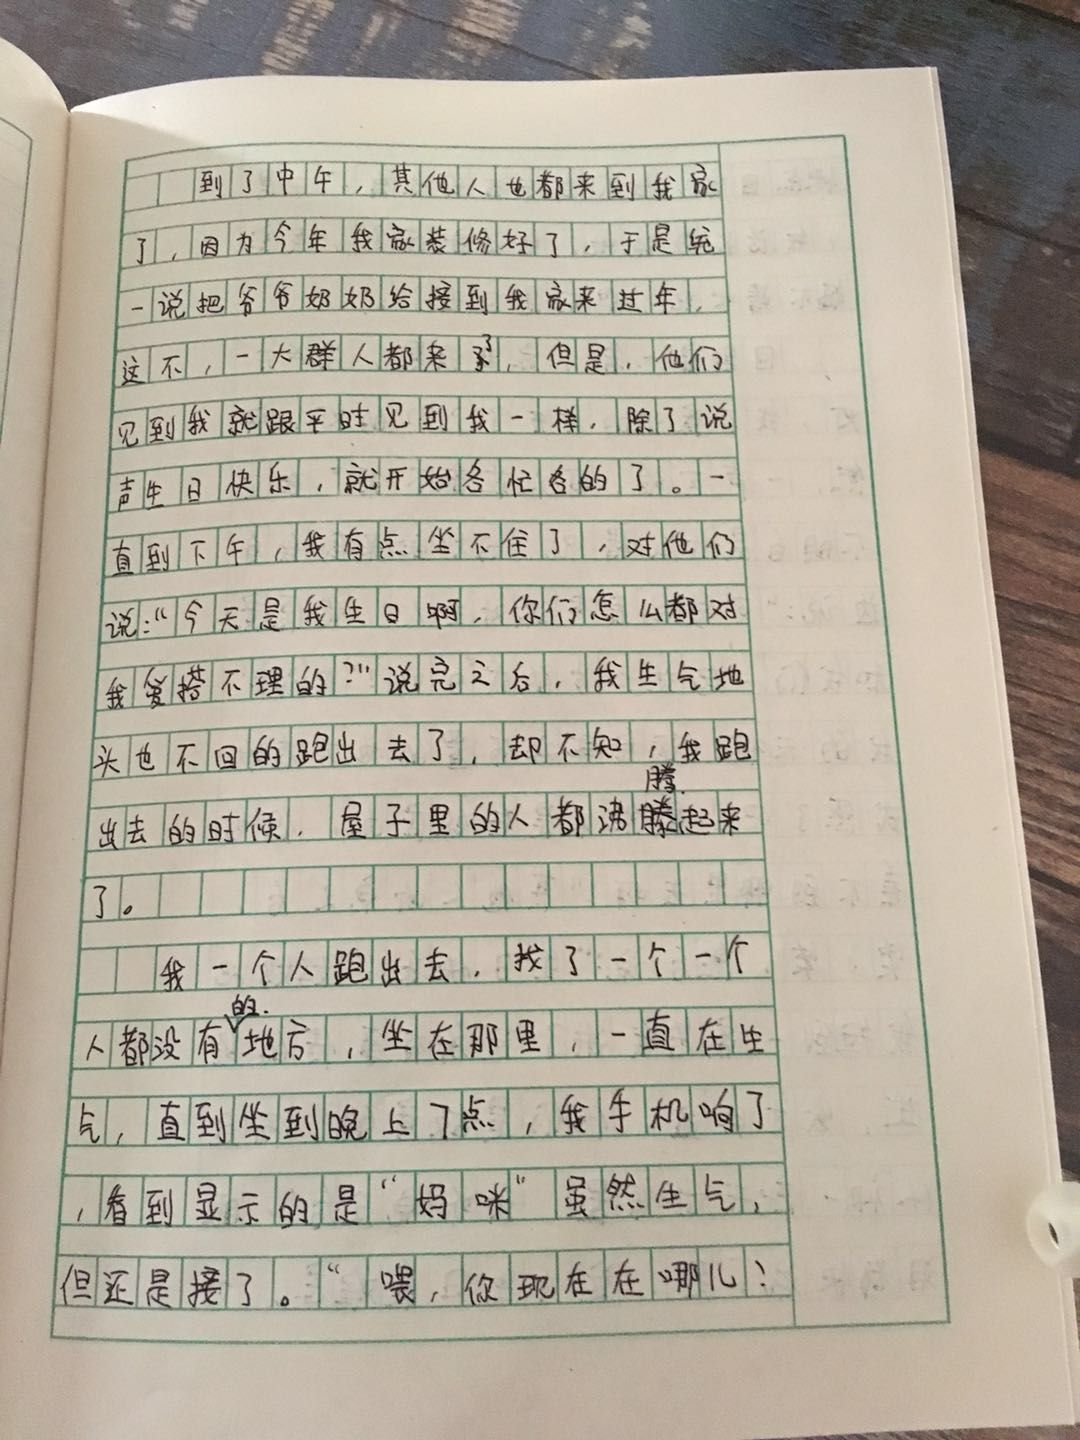 到了中午，其他人也都来到我家
了，因为今年我家装修好了，于是统
一说把爷爷奶奶给接到我家来过年，
这不，一大群人都来了，但是，他们
见到我就跟平时见到我一样，除了说
声生日快乐，就开始各忙各的了。一
直到下午，我有点坐不住了，对他们
说：“今天是我生日啊，你们怎么都对
我爱搭不理的？”说完之后，我生气地
头也不回的跑出去了，却不知，我跑
出去的时候，屋子里的人都沸腾起来
了。
我一个人跑出去，找了一个一个
人都没有的地方，坐在那里，一直在生
气，直到坐到晚上7点，我手机响了
，看到显示的是“妈咪”虽然生气，
但还是接了。“喂，你现在在哪儿？